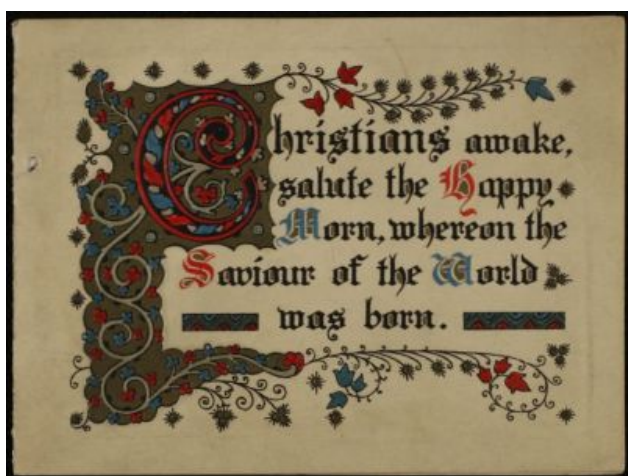 Christians awake,
salute the Happy
Morn, whereon the
Saviour of the World
was born.